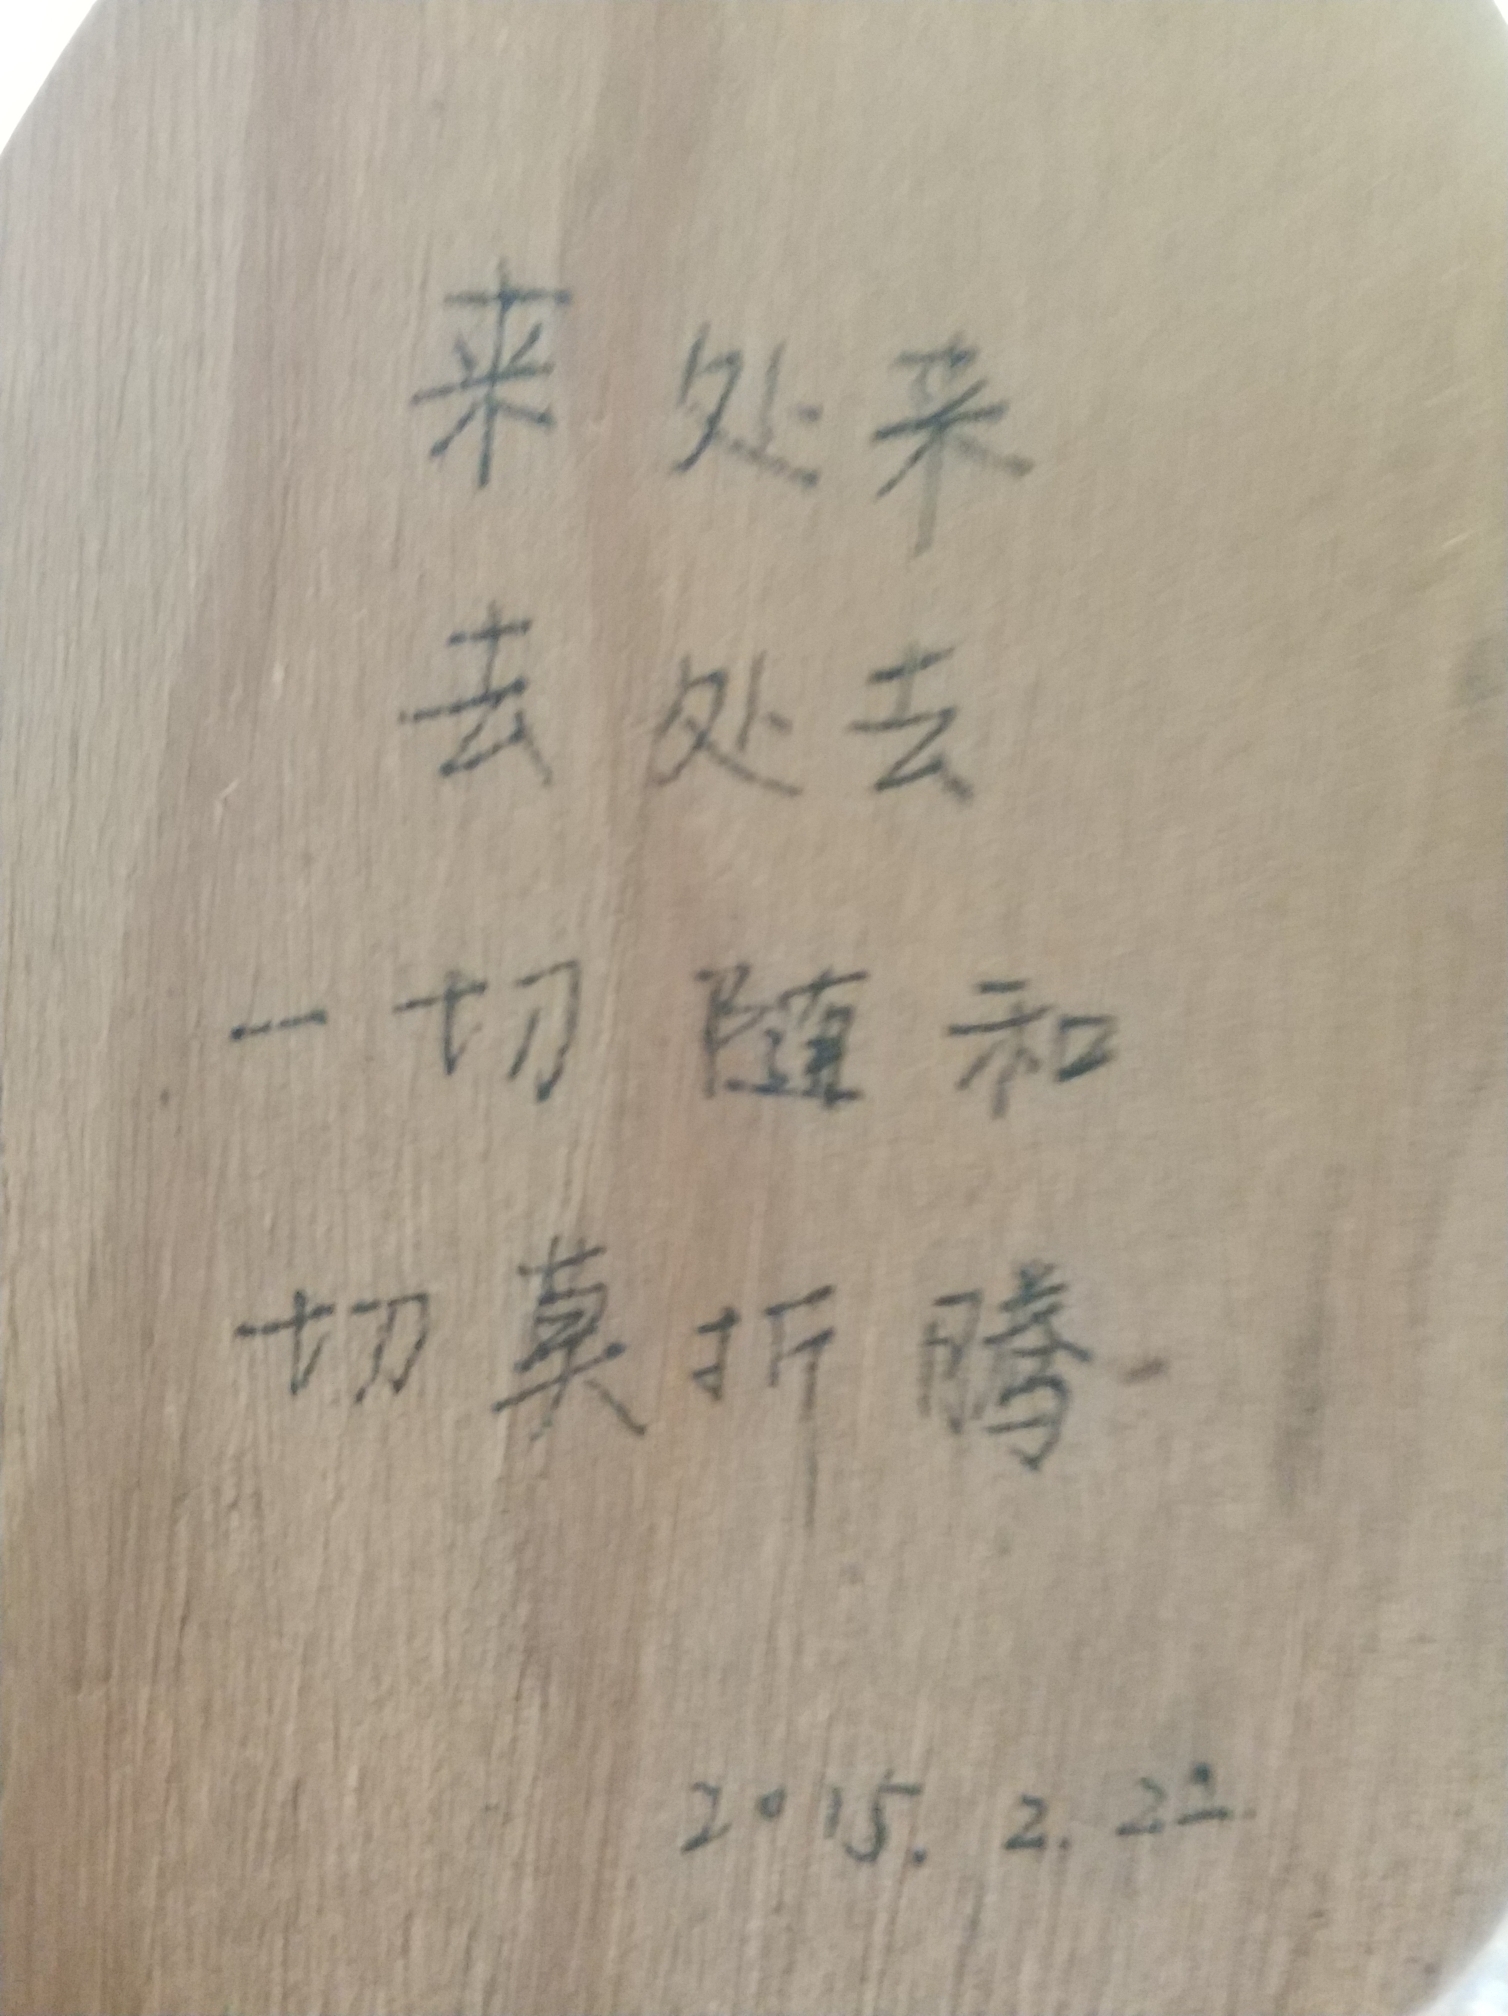 来处来
去处去
一切随和
切莫折腾
2015. 2. 22